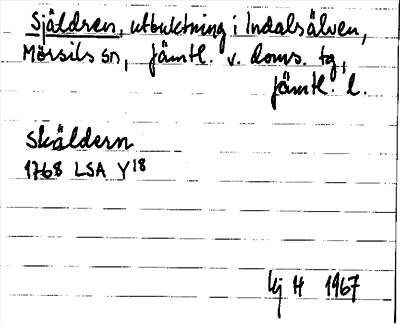 Själdren, utbuktning i Indalsälven,
Mörsils sn, Jämtl. v. doms. tg,
Jämtl. l.
Skäldern
1768 LSA Y18
kj H 1967